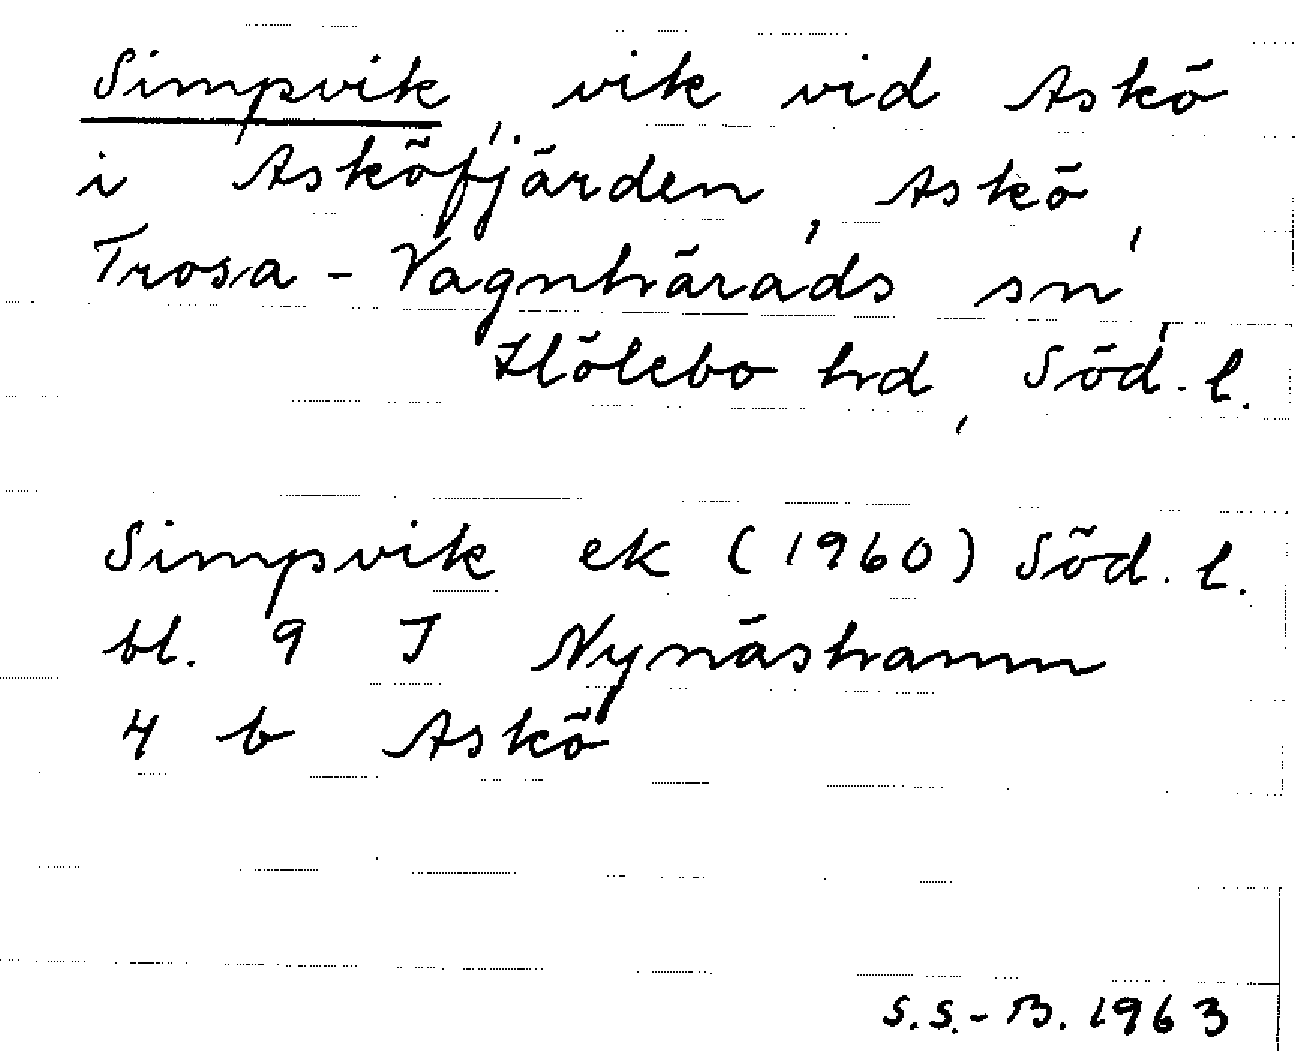 Simpvik, vik vid Askö
i Asköfjärden, Askö,
Trosa - Vagnhärads sn,
Hölebo hrd, Söd. l.
Simpvik ek (1960) Söd. l.
bl. 9 I Nynäshamn
4 b Askö
S.S.-B. 1963